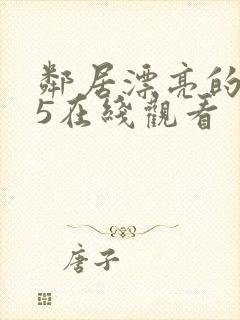 鄰居漂亮的
5在綫觀看
唐子